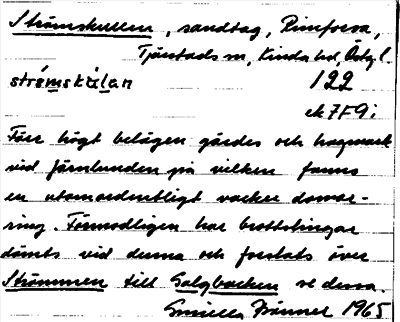 Strömskullen, sandtag, Rimforsa,
Tjärstads sn, Kinda hd, Östg l.
strémskúlan 122
ek 7F9i
Förr högt belägen gärdes och hagmark
vid Järnlunden på vilken fanns
en utomordentligt vacker domar-
ring. Förmodligen har brottslingar
dömts vid denna och forslats över
Strömmen till Galgbacken se dessa.
Gunilla Bänner 1965